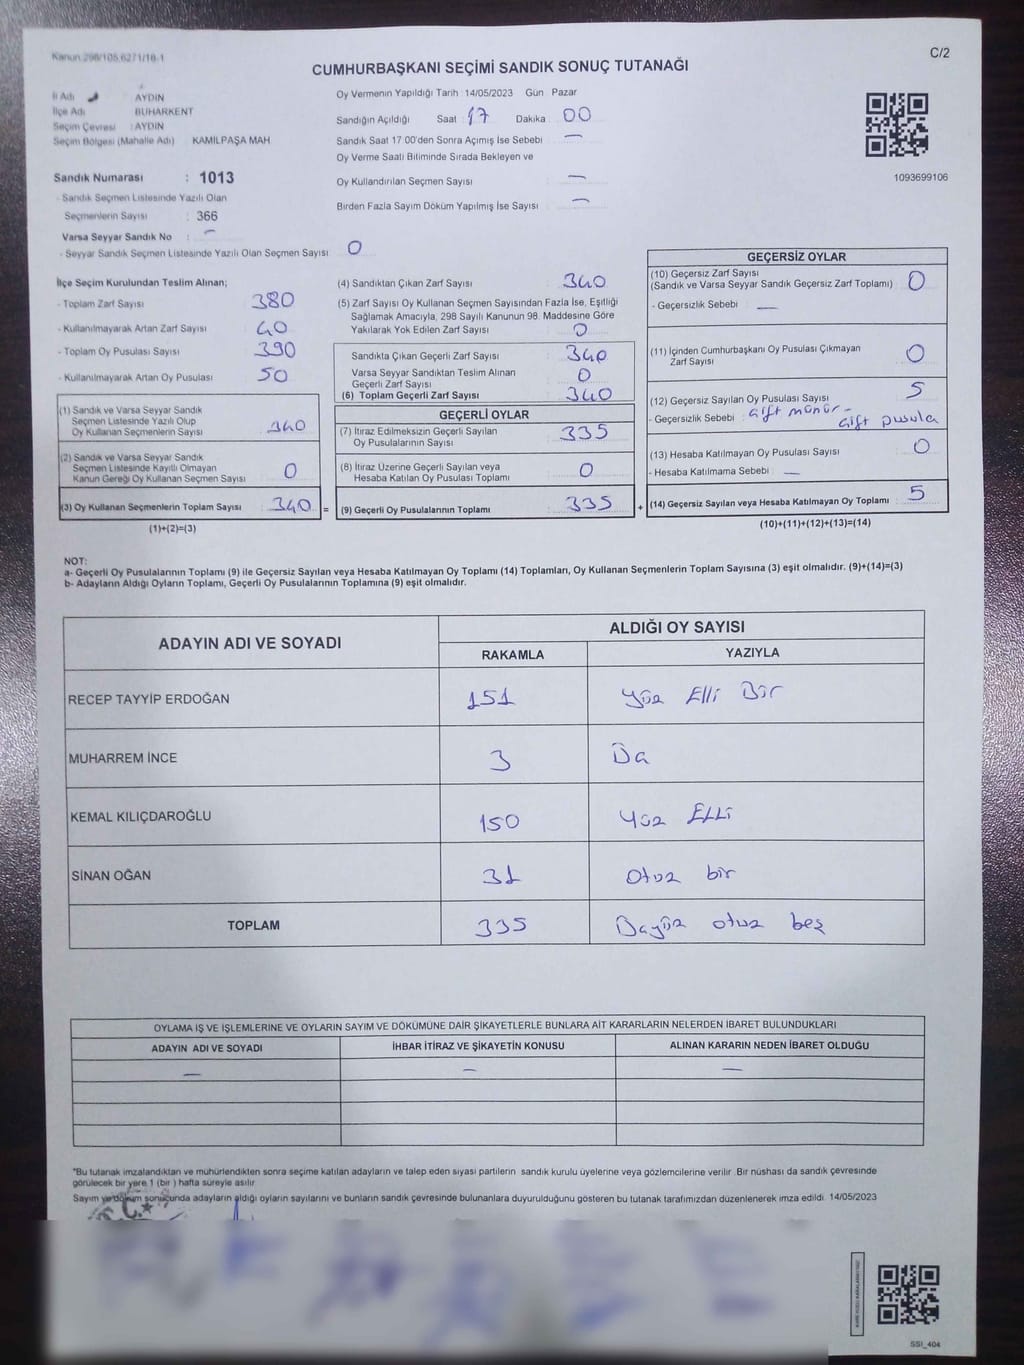 Kanun 298/105,6271/18-1
C/2
CUMHURBAŞKANI SEÇİMİ SANDIK SONUÇ TUTANAĞI
İl Adı AYDIN
İlçe Adı BUHARKENT
Seçim Çevresi : AYDIN
Seçim Bölgesi (Mahalle Adı) KAMİLPAŞA MAH
Oy Vermenin Yapıldığı Tarih 14/05/2023 Gün Pazar
Sandığın Açıldığı Saat 17 Dakika 00
Sandık Saat 17 00'den Sonra Açımış İse Sebebi : —
Oy Verme Saati Bitiminde Sırada Bekleyen ve
Oy Kullandırılan Seçmen Sayısı : —
Birden Fazla Sayım Döküm Yapılmış İse Sayısı : —
1093699106
Sandık Numarası : 1013
- Sandık Seçmen Listesinde Yazılı Olan
Seçmenlerin Sayısı : 366
Varsa Seyyar Sandık No : —
- Seyyar Sandık Seçmen Listesinde Yazılı Olan Seçmen Sayısı : 0
İlçe Seçim Kurulundan Teslim Alınan;
- Toplam Zarf Sayısı : 380
- Kullanılmayarak Artan Zarf Sayısı : 40
- Toplam Oy Pusulası Sayısı : 390
- Kullanılmayarak Artan Oy Pusulası : 50
(1) Sandık ve Varsa Seyyar Sandık
Seçmen Listesinde Yazılı Olup
Oy Kullanan Seçmenlerin Sayısı : 340
(2) Sandık ve Varsa Seyyar Sandık
Seçmen Listesinde Kayıtlı Olmayan
Kanun Gereği Oy Kullanan Seçmen Sayısı : 0
(3) Oy Kullanan Seçmenlerin Toplam Sayısı : 340 =
(1)+(2)=(3)
(4) Sandıktan Çıkan Zarf Sayısı : 340
(5) Zarf Sayısı Oy Kullanan Seçmen Sayısından Fazla İse, Eşitliği
Sağlamak Amacıyla, 298 Sayılı Kanunun 98. Maddesine Göre
Yakılarak Yok Edilen Zarf Sayısı : 0
Sandıkta Çıkan Geçerli Zarf Sayısı : 340
Varsa Seyyar Sandıktan Teslim Alınan
Geçerli Zarf Sayısı : 0
(6) Toplam Geçerli Zarf Sayısı : 340
GEÇERLİ OYLAR
(7) İtiraz Edilmeksizin Geçerli Sayılan
Oy Pusulalarının Sayısı : 335
(8) İtiraz Üzerine Geçerli Sayılan veya
Hesaba Katılan Oy Pusulası Toplamı : 0
(9) Geçerli Oy Pusulalarının Toplamı : 335 +
GEÇERSİZ OYLAR
(10) Geçersiz Zarf Sayısı
(Sandık ve Varsa Seyyar Sandık Geçersiz Zarf Toplamı) : 0
- Geçersizlik Sebebi : —
(11) İçinden Cumhurbaşkanı Oy Pusulası Çıkmayan
Zarf Sayısı : 0
(12) Geçersiz Sayılan Oy Pusulası Sayısı : 5
- Geçersizlik Sebebi : çift mühür -
çift pusula
(13) Hesaba Katılmayan Oy Pusulası Sayısı : 0
- Hesaba Katılmama Sebebi : —
(14) Geçersiz Sayılan veya Hesaba Katılmayan Oy Toplamı : 5
(10)+(11)+(12)+(13)=(14)
NOT:
a- Geçerli Oy Pusulalarının Toplamı (9) ile Geçersiz Sayılan veya Hesaba Katılmayan Oy Toplamı (14) Toplamları, Oy Kullanan Seçmenlerin Toplam Sayısına (3) eşit olmalıdır. (9)+(14)=(3)
b- Adayların Aldığı Oyların Toplamı, Geçerli Oy Pusulalarının Toplamına (9) eşit olmalıdır.
ADAYIN ADI VE SOYADI
ALDIĞI OY SAYISI
RAKAMLA YAZIYLA
RECEP TAYYİP ERDOĞAN 151 Yüz Elli Bir
MUHARREM İNCE 3 Üç
KEMAL KILIÇDAROĞLU 150 Yüz ELLi
SİNAN OĞAN 31 Otuz bir
TOPLAM 335 Üçyüz otuz beş
OYLAMA İŞ VE İŞLEMLERİNE VE OYLARIN SAYIM VE DÖKÜMÜNE DAİR ŞİKAYETLERLE BUNLARA AİT KARARLARIN NELERDEN İBARET BULUNDUKLARI
ADAYIN ADI VE SOYADI İHBAR İTİRAZ VE ŞİKAYETİN KONUSU ALINAN KARARIN NEDEN İBARET OLDUĞU
— — —
*Bu tutanak imzalandıktan ve mühürlendikten sonra seçime katılan adayların ve talep eden siyasi partilerin sandık kurulu üyelerine veya gözlemcilerine verilir. Bir nüshası da sandık çevresinde
görülecek bir yere 1 (bir ) hafta süreyle asılır
Sayım ve döküm sonucunda adayların aldığı oyların sayılarını ve bunların sandık çevresinde bulunanlara duyurulduğunu gösteren bu tutanak tarafımızdan düzenlenerek imza edildi. 14/05/2023
T.C.
SSI_404